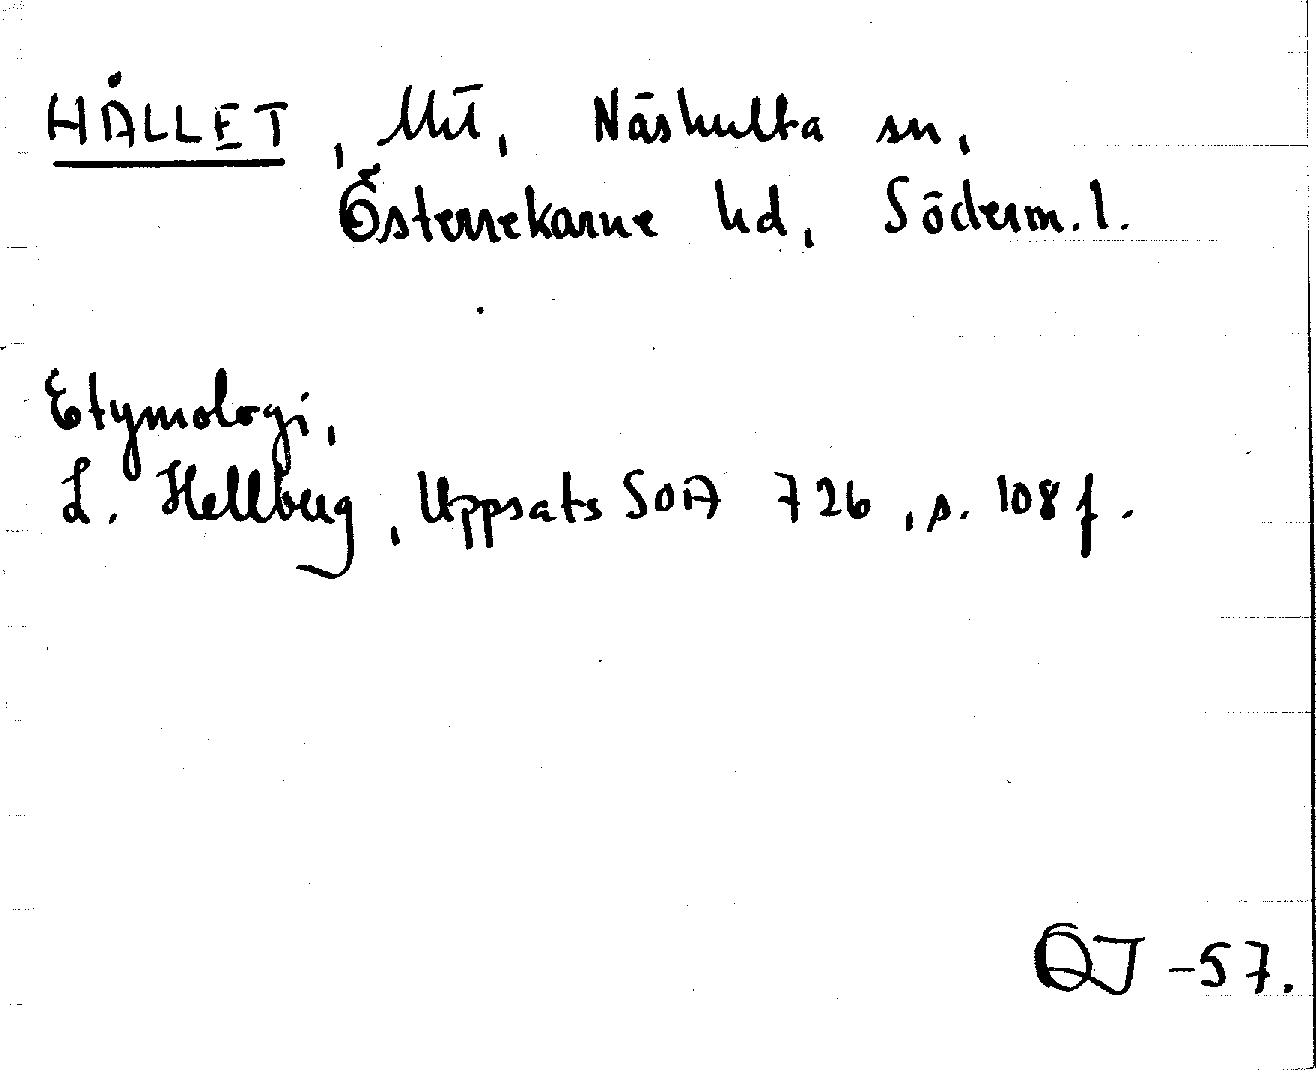 HÅLLET, Utj, Näshulta sn,
Österrekarne hd, Söderm. l.
Etymologi,
L. Hellberg, Uppsats SOA 726, s. 108 f.
QJ -57.